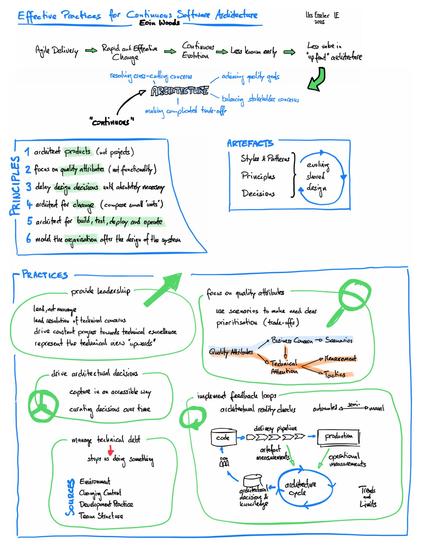 Effective Practices for Continuous Software Architecture
Eoin Woods
Agile Delivery
Rapid and Effective Change
Continuous Evolution
Less known early
Less value in "upfront" architecture
resolving cross-cutting concerns
achieving quality goals
ARCHITECTURE
balancing stakeholder concerns
making complicated trade-offs
"CONTINUOUS"
PRINCIPLES
1 architect products (not projects)
2 focus on quality attributes (not functionality)
3 delay design decisions until absolutely necessary
4 architect for change
5 architect for build, test, deploy and operate
6 model the organisation after the design of the system
ARTEFACTS
Styles & Patterns
Principles
Decisions
evolving
shared
design
PRACTICES
provide leadership
lead, not manage
lead resolution of technical concerns
drive constant progress towards technical excellence
represent the technical view "upwards"
focus on quality attributes
use scenarios to make need clear
prioritisation (trade-offs)
Quality Attributes
Business Concern
Scenarios
Technical Attention
Measurement
Tactics
drive architectural decisions
capture in an accessible way
curating decisions over time
implement feedback loops
architectural reality checks
automated
semi-
manual
code
delivery pipeline
production
artefact measurements
operational measurements
architectural decisions & knowledge
architecture cycle
Trends and Limits
manage technical debt
stops us doing something
SOURCES
Environment
Changing Context
Development Practice
Team Structure